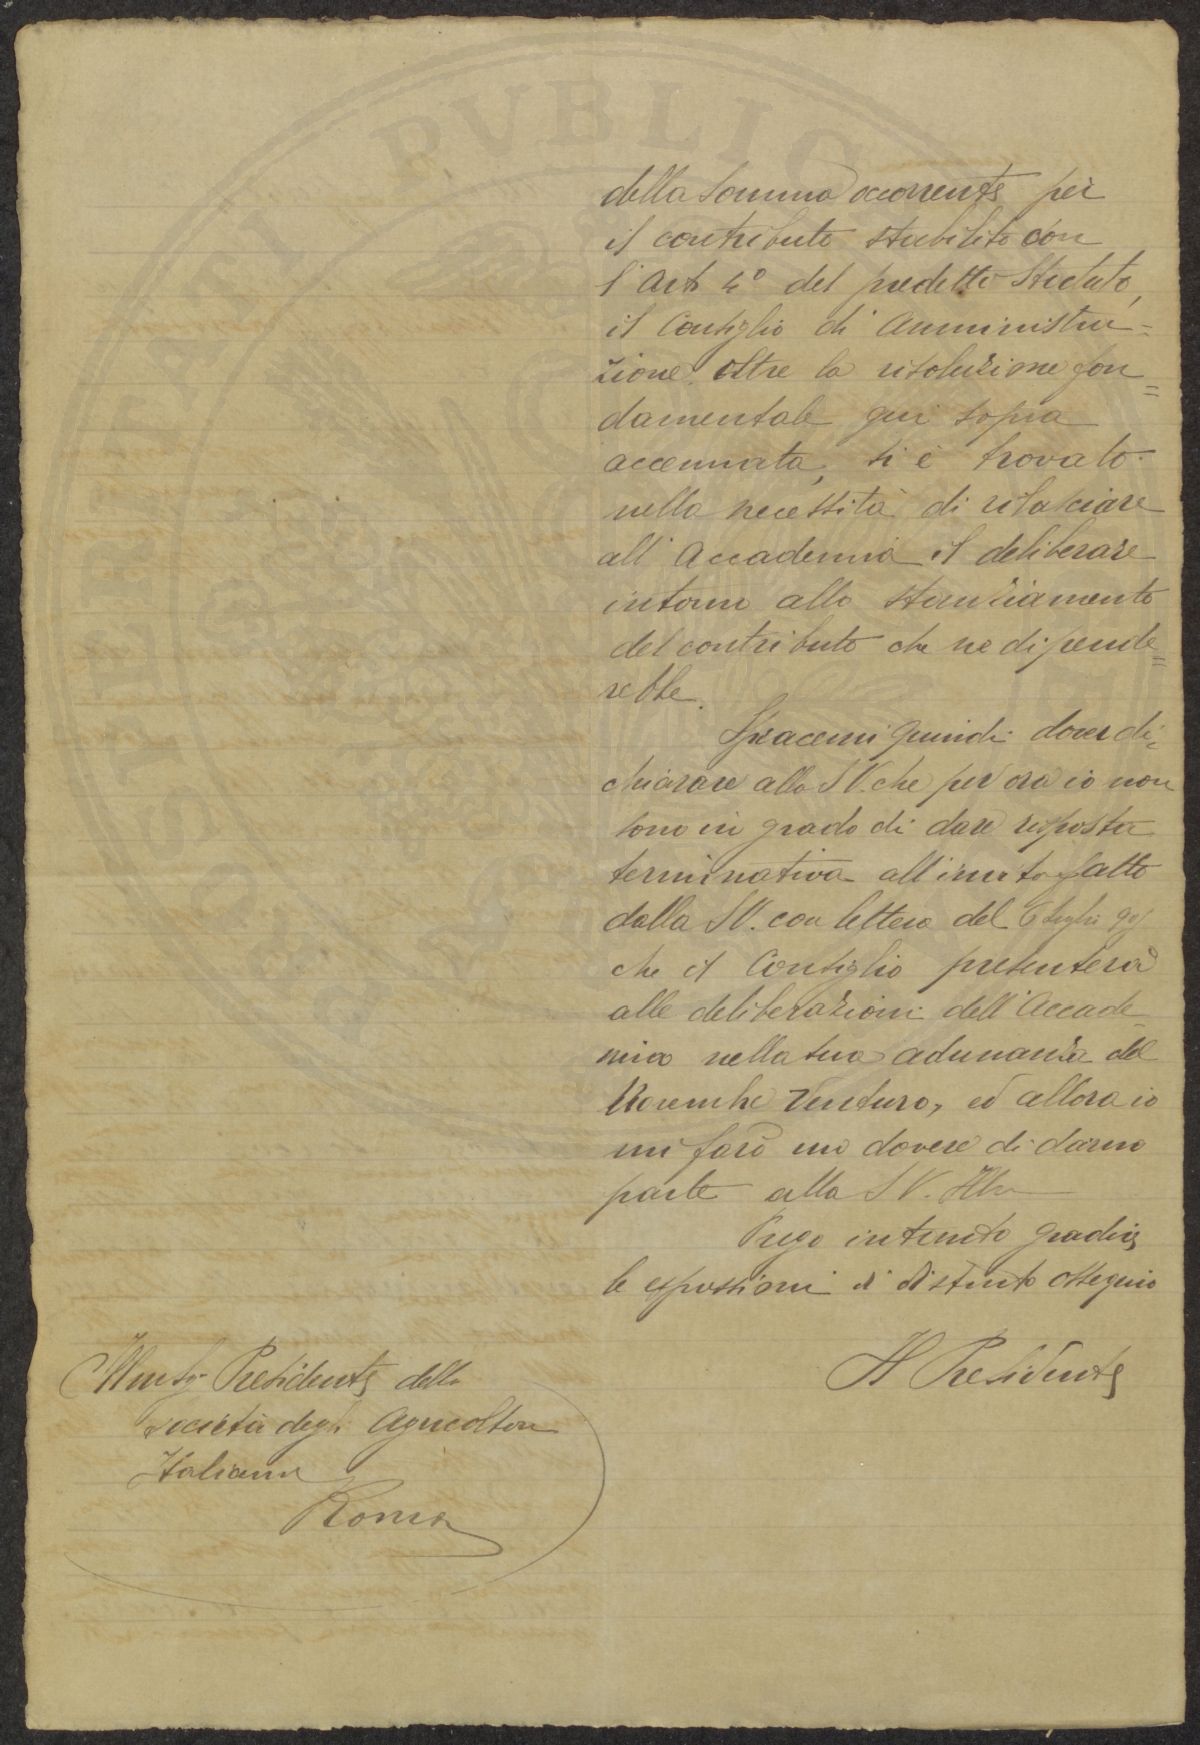 della somma occorrente per
il contributo stabilito con
l'Art 4º del predetto Statuto,
il Consiglio di Amministra=
zione, oltre la risoluzione fon=
damentale qui sopra
accennata, si è trovato
nella necessità di rilasciare
all'Accademia il deliberare
intorno allo stanziamento
del contributo che ne dipende=
rebbe.
Spiacemi quindi dover di=
chiarare alla S V. che per ora io non
sono in grado di dare risposta
terminativa all'invito fatto
dalla S V. con lettera del 6 luglio
che il Consiglio presenterà
alle deliberazioni dell'Accade
mia nella sua adunanza del
Novembre venturo, ed allora io
mi farò un dovere di darne
parte alla S V. Illma
Prego intanto gradire
le espressioni di distinto ossequio
Il Presidente
Illusts Presidente della
Società degli Agricoltori
Italiani
Roma
PVBLIC